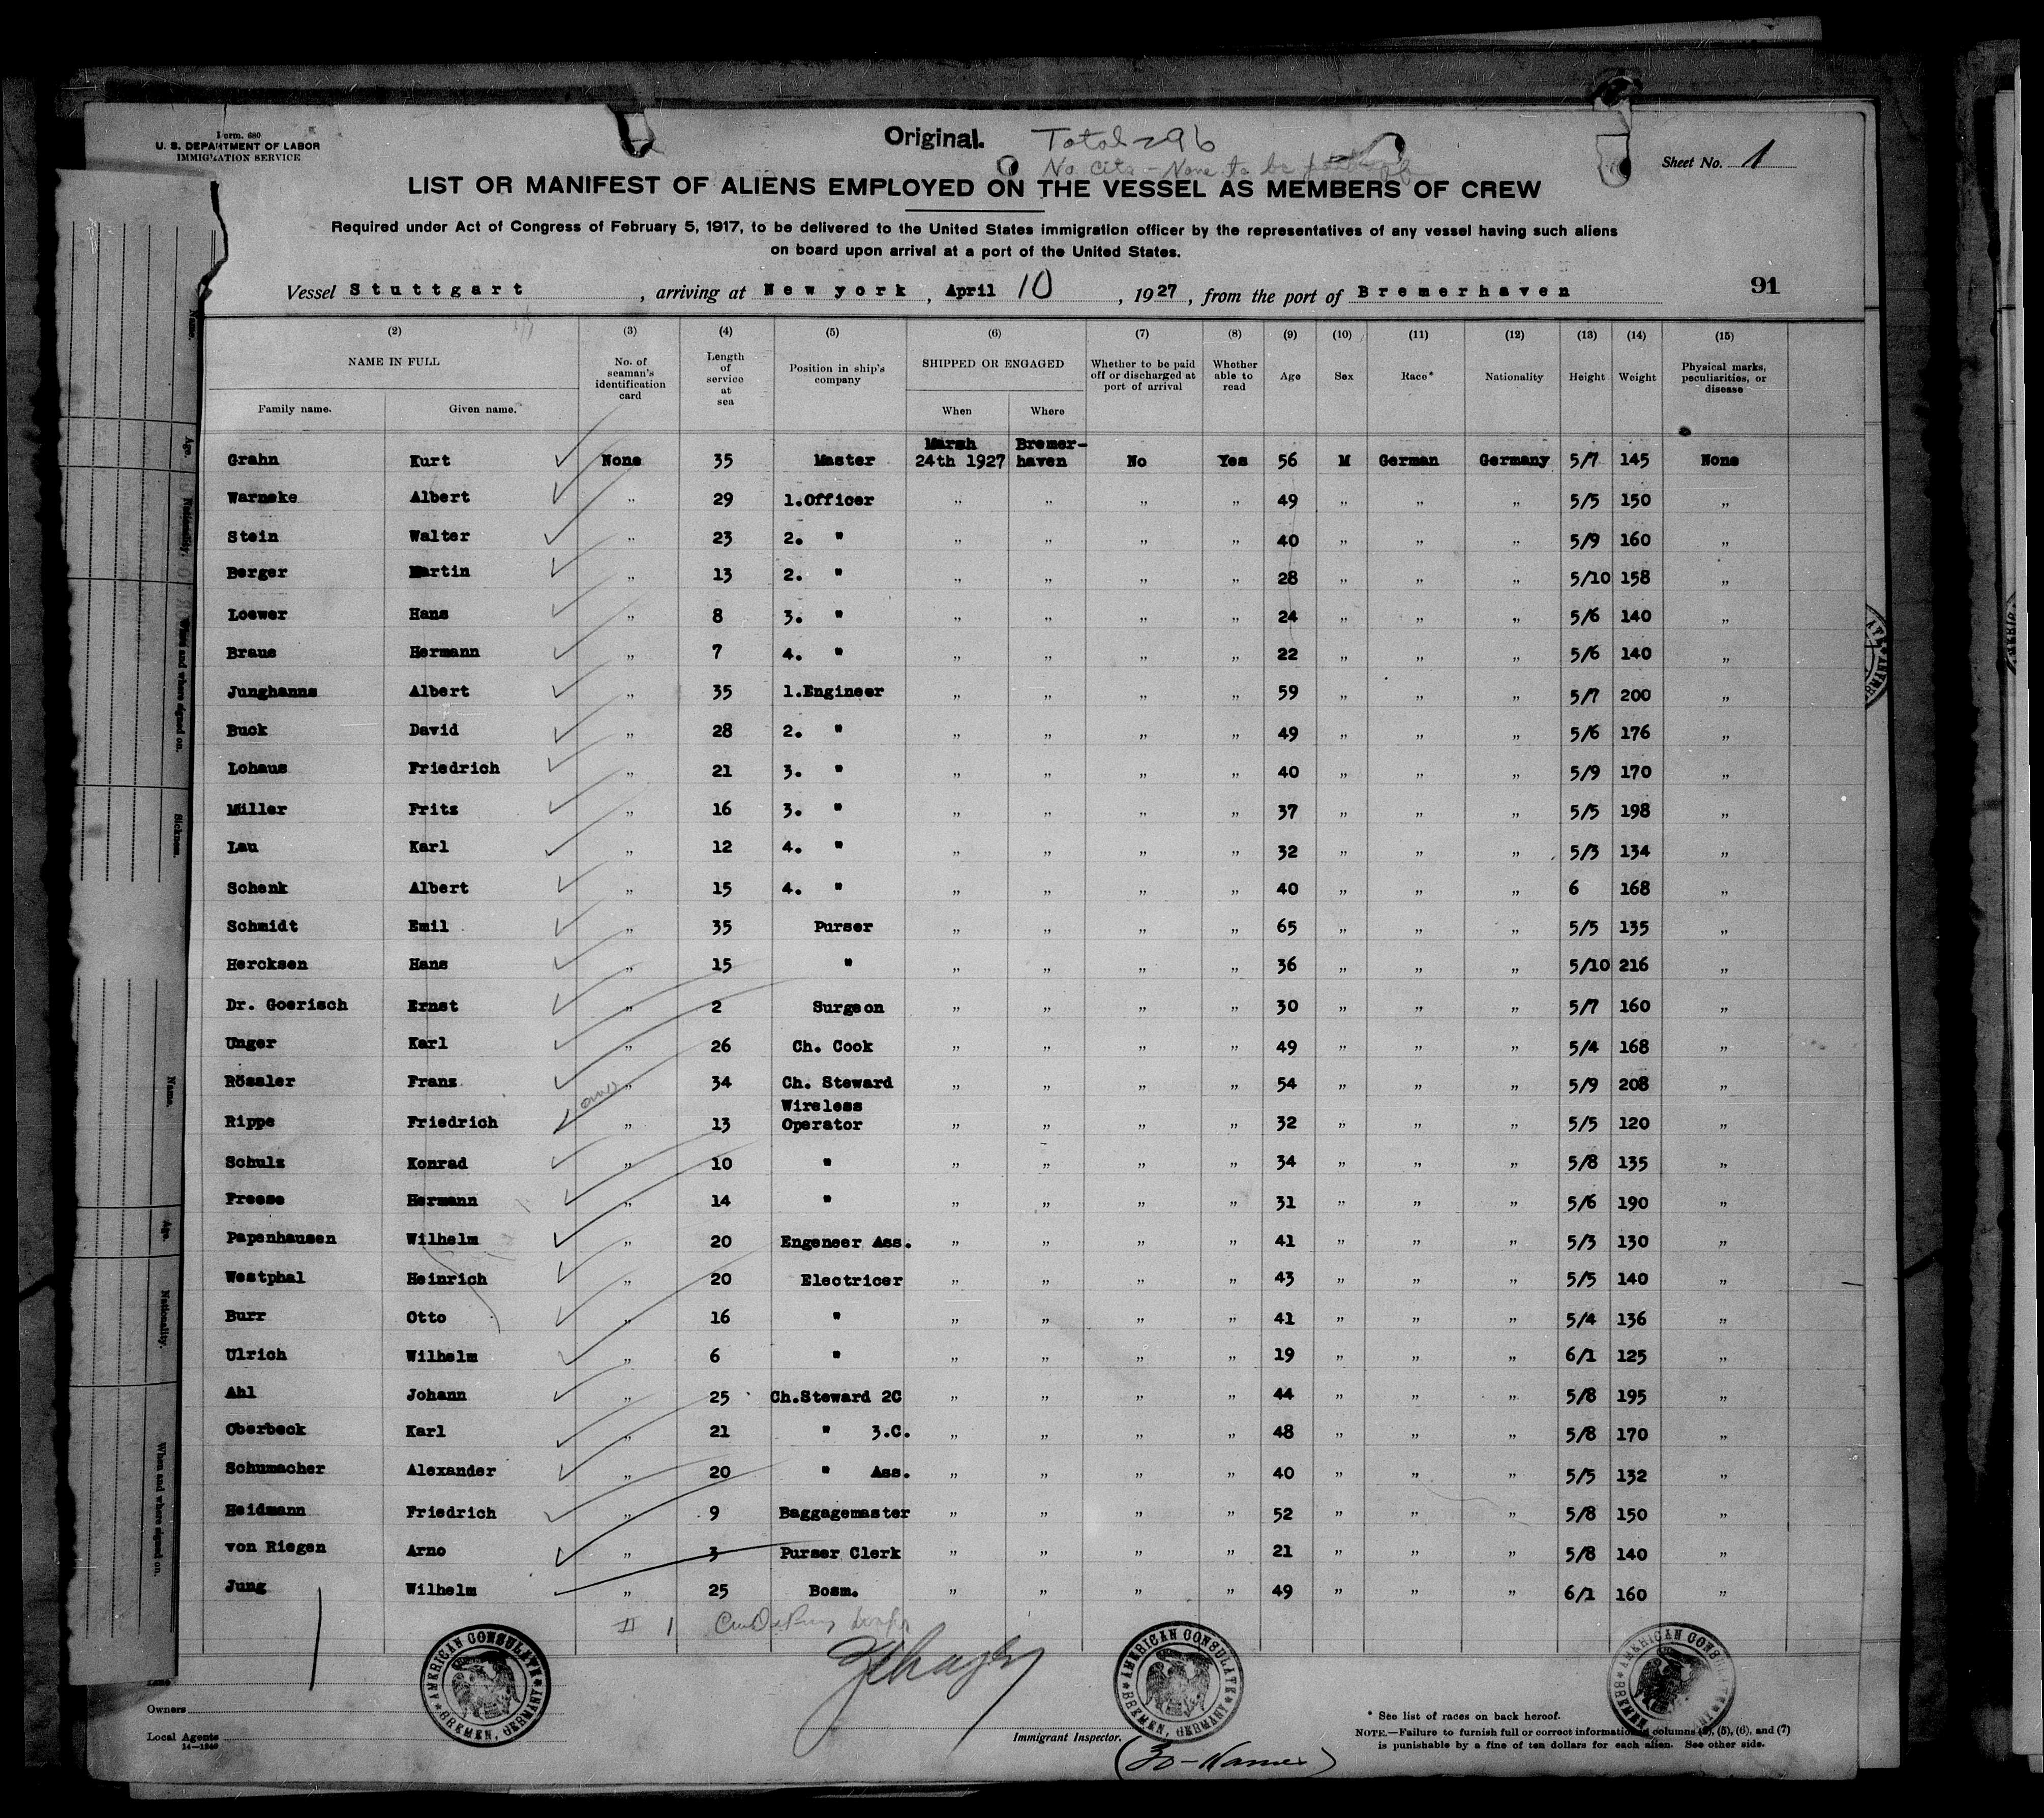 Form. 680
U. S. DEPARTMENT OF LABOR
IMMIGRATION SERVICE
Original. Total 296
No Cits - None to be
Sheet No. 1
LIST OR MANIFEST OF ALIENS EMPLOYED ON THE VESSEL AS MEMBERS OF CREW
Required under Act of Congress of February 5, 1917, to be delivered to the United States immigration officer by the representatives of any vessel having such aliens
on board upon arrival at a port of the United States.
Vessel Stuttgart, arriving at New york, April 10, 1927, from the port of Bremerhaven 91
(2) (3) (4) (5) (6) (7) (8) (9) (10) (11) (12) (13) (14) (15)
NAME IN FULL No. of seaman's identification card Length of service at sea Position in ship's company SHIPPED OR ENGAGED Whether to be paid off or discharged at port of arrival Whether able to read Age Sex Race* Nationality Height Weight Physical marks, peculiarities, or disease
Family name. Given name. When Where
Marsh Bremer-
Grahn Kurt None 35 Master 24th 1927 haven No Yes 56 M German Germany 5/7 145 None
Warneke Albert " 29 1.Officer " " " " 49 " " " 5/5 150 "
Stein Walter " 23 2. " " " " " 40 " " " 5/9 160 "
Berger Martin " 13 2. " " " " " 28 " " " 5/10 158 "
Loewer Hans " 8 3. " " " " " 24 " " " 5/6 140 "
Braus Hermann " 7 4. " " " " " 22 " " " 5/6 140 "
Junghanns Albert " 35 1.Engineer " " " " 59 " " " 5/7 200 "
Buck David " 28 2. " " " " " 49 " " " 5/6 176 "
Lohaus Friedrich " 21 3. " " " " " 40 " " " 5/9 170 "
Miller Fritz " 16 3. " " " " " 37 " " " 5/5 198 "
Lau Karl " 12 4. " " " " " 32 " " " 5/3 134 "
Schenk Albert " 15 4. " " " " " 40 " " " 6 168 "
Schmidt Emil " 35 Purser " " " " 65 " " " 5/5 135 "
Hercksen Hans " 15 " " " " " 36 " " " 5/10 216 "
Dr. Goerisch Ernst " 2 Surgeon " " " " 30 " " " 5/7 160 "
Unger Karl " 26 Ch. Cook " " " " 49 " " " 5/4 168 "
Rössler Franz " 34 Ch. Steward " " " " 54 " " " 5/9 208 "
Wireless
Rippe Friedrich " 13 Operator " " " " 32 " " " 5/5 120 "
Schulz Konrad " 10 " " " " " 34 " " " 5/8 135 "
Freese Hermann " 14 " " " " " 31 " " " 5/6 190 "
Papenhausen Wilhelm " 20 Engeneer Ass. " " " " 41 " " " 5/3 130 "
Westphal Heinrich " 20 Electricer " " " " 43 " " " 5/5 140 "
Burr Otto " 16 " " " " " 41 " " " 5/4 136 "
Ulrich Wilhelm " 6 " " " " " 19 " " " 6/1 125 "
Ahl Johann " 25 Ch.Steward 2C " " " " 44 " " " 5/8 195 "
Oberbeck Karl " 21 " 3.C. " " " " 48 " " " 5/8 170 "
Schumacher Alexander " 20 " Ass. " " " " 40 " " " 5/5 132 "
Heidmann Friedrich " 9 Baggagemaster " " " " 52 " " " 5/8 150 "
von Riegen Arno " 3 Purser Clerk " " " " 21 " " " 5/8 140 "
Jung Wilhelm " 25 Bosm. " " " " 49 " " " 6/1 160 "
AMERICAN CONSULATE BREMEN, GERMANY
AMERICAN CONSULATE BREMEN, GERMANY
AMERICAN CONSULATE BREMEN
Owners
Local Agents
14—1240
Immigrant Inspector.
(30-Names)
* See list of races on back hereof.
NOTE.—Failure to furnish full or correct information columns (5), (6), and (7)
is punishable by a fine of ten dollars for each alien. See other side.
Name.
Age.
Nationality.
When and where signed on.
Sickness.
Name.
Age.
Nationality.
When and where signed on.